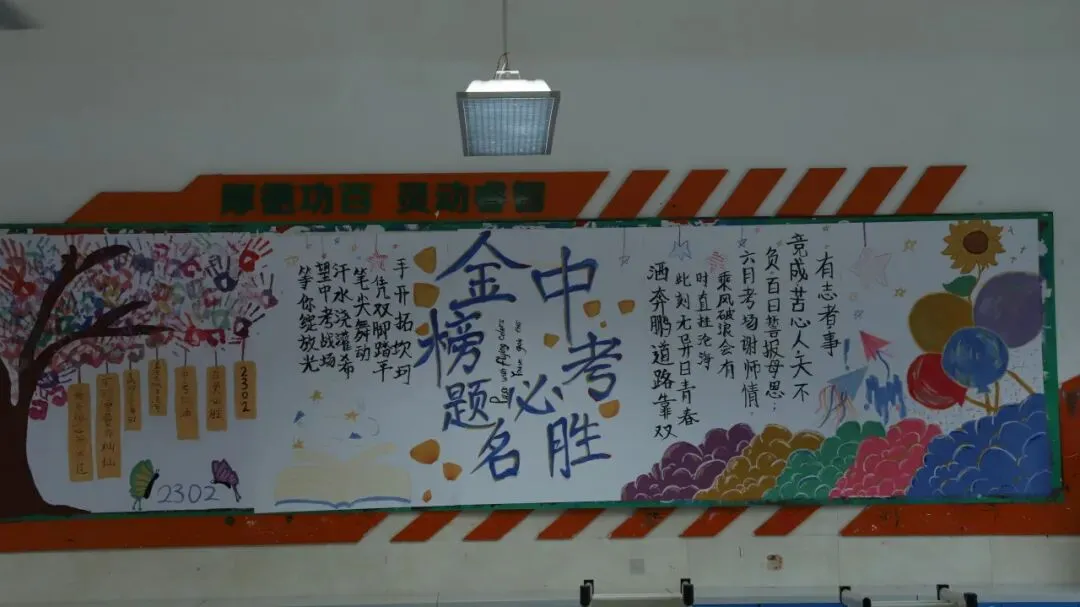 灵动睿智
有志者事
竞成苦心人天不
负百日誓报母恩;
六月考场谢师情.
乘风破浪会有
时直挂沧海
此刻无异日青春
洒奔鹏道路靠双
中考必胜
金榜题名
手开拓坎坷
凭双脚踏平
笔尖舞动
汗水浇灌希
望中考战场
等你绽放光
2302
2302